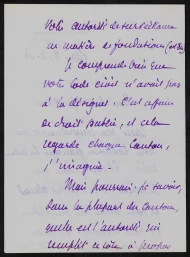 votre autorité de surveillance
en matière de fondations
Je comprends bien que
votre Code civil n'avait pas
à la désigner. C'est affaire
de droit public, et cela
regarde chaque Canton,
j'imagine.
Mais pourrais-je savoir,
dans la plupart des cantons,
quelle est l'autorité qui
remplit ce rôle à propos